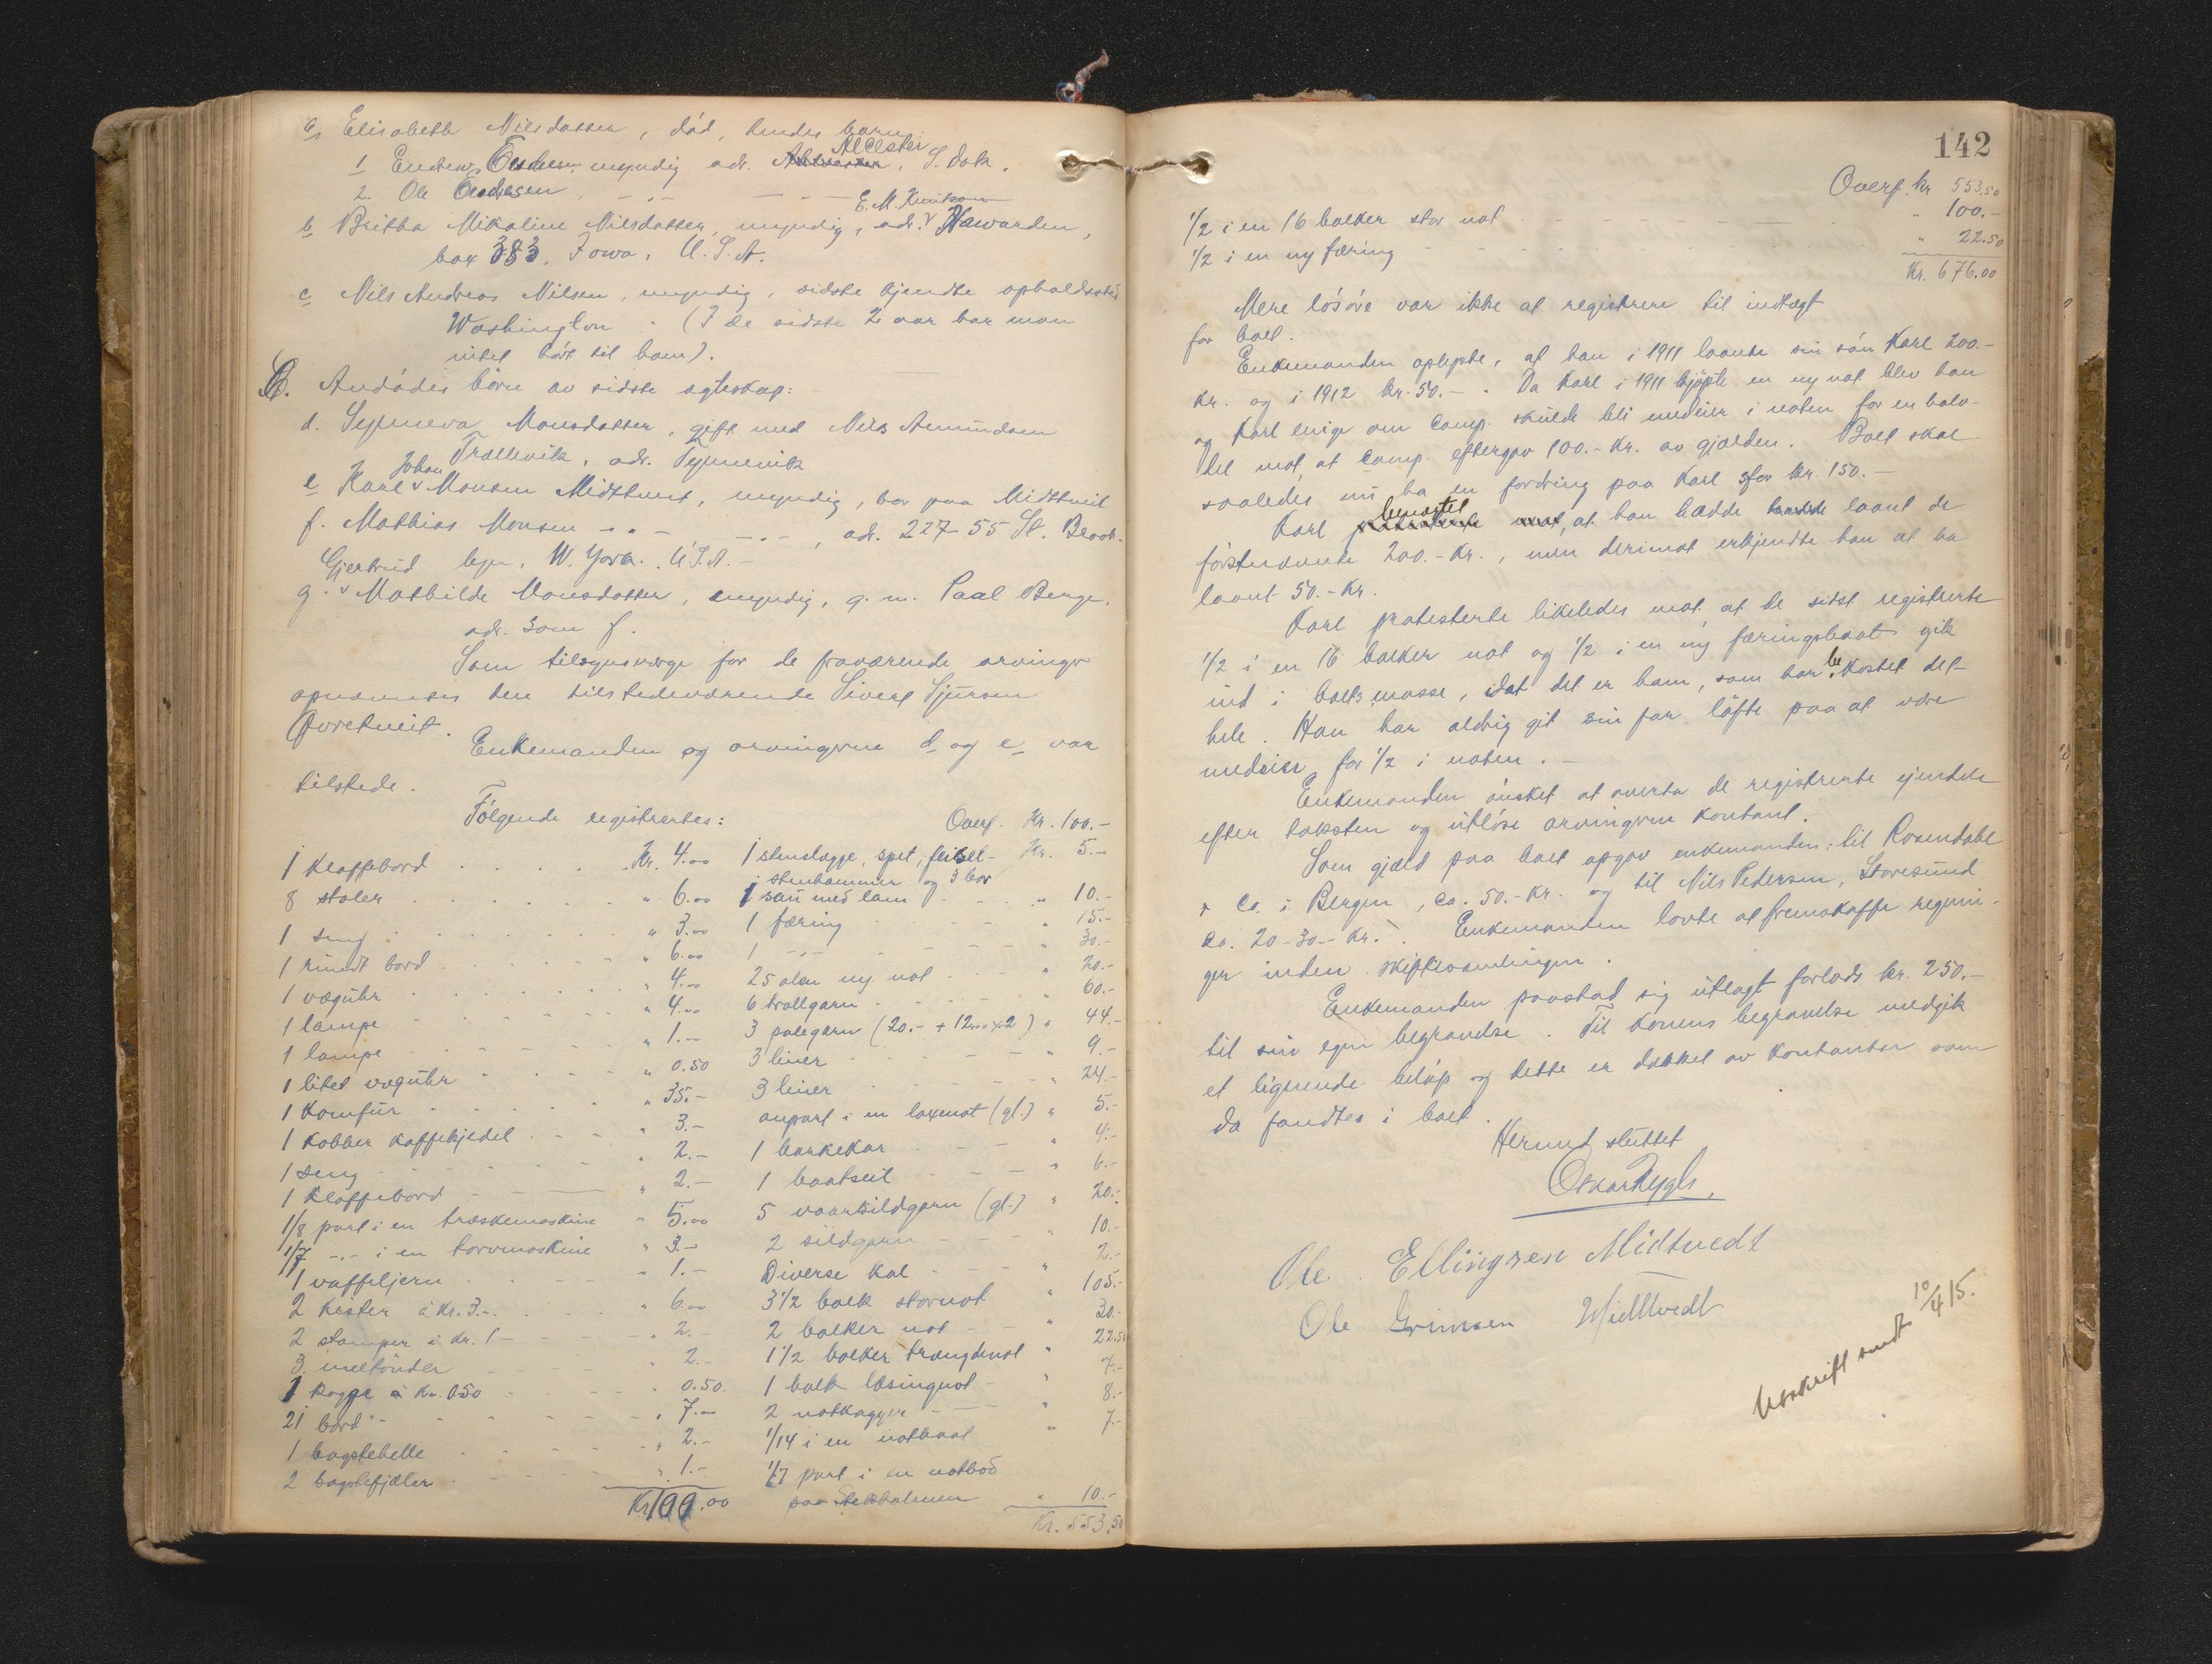 a, Elisabeth Nilsdatter, död, hendes barn:
Alcester
1 Endre Endresen myndig adr. , S. Dak.
2. Ole Endresen -"- -"-
E. M. Knutson
b, Britha Mikaline Nilsdatter, myndig, adr. Hawarden,
box 383, Iowa, U.S.A.
c, Nils Andreas Nilsen, myndig, sidste kjendte opholdssted
Washington. (I de sidste 2 aar har man
intet hört til ham).
B. Avdödes börn av sidste egteskap:
d. Synneva Monsdatter, gift med Nils Amundsen
Trællevik, adr. Tynnevik
Johan
e Karl Monsen Midttveit, myndig, bor paa Midttveit
f. Mathias Monsen -"- -"-, adr. 227-55 St. Brook-
Gjertrud lyn, N. York. U.S.A.-
g. Mathilde Monsdatter, myndig, g. m. Paal Berge,
adr. som f.
Som tilsynsverge for de fraværende arvinger
opnævnes den tilstedeværende Sivert Sjursen
Övretveit.
Enkemanden og arvingerne d og e var
tilstede.
Følgende registrertes:
1 klaffebord Kr. 4.00
8 stoler " 6.00
1 seng " 3.00
1 rundt bord " 6.00
1 vægúhr " 4.00
1 lampe " 4.00
1 lampe " 1.00
1 litet vægúhr " 0.50
1 komfúr " 35.-
1 kobber kaffekjedel " 3.-
1 seng " 2.-
1 klaffebord " 2.-
1/8 part i en træskemaskine " 5.00
1/7 -"- i en torvmaskine " 3.-
1 vaffeljern " 1.-
2 kister à kr. 3.- " 6.00
2 stamper à kr. 1.- " 2.-
3 meltönder " 2.-
1 kagge à kr. 0.50 " 0.50
21 bord " 7.00
1 bagstehelle " 2.-
2 bagstefjæler " 1.-
Kr. 100.00
Overf. Kr. 100.-
1 stenslægge, spet, feisel- Kr. 5.-
stenhammer og 3 bor
1 sau med lam " 10.-
1 færing " 15.-
1 -"- " 30.-
25 alen ny not " 20.-
6 trollgarn " 60.-
3 palegarn (20.- + 12.00 x 2) " 44.-
3 liner 9.-
3 liner " 24.-
anpart i en laxenot (gl.) " 5.-
1 barkekar " 4.-
1 baatseil " 6.-
5 vaarsildgarn (gl.) " 20.-
2 sildgarn " 10.-
Diverse kal " 2.-
3 1/2 bolk stornot " 105.-
2 bolker not " 30.-
1 1/2 bolker trængdenot " 22.50
1 bolk læsingnot " 7.-
2 notkagger " 8.-
1/14 i en notbaat " 7.-
1/7 part i en notbod
paa " 10.-
Kr. 553,50
142
Overf. kr 553.50
1/2 i en 16 bolker stor not " 100.-
1/2 i en ny færing " 22.50
Kr. 676.00
Mere lösöre var ikke at registrere til indtægt
for boet.
Enkemanden oplyste, at han i 1911 laante sin sön Karl 200.-
kr. og i 1912 kr. 50.-. Da Karl i 1911 kjöpte en ny not blev han
og Karl enige om Comp. skulde bli medeier i noten for en halv-
del mot, at Comp. eftergav 100.- kr. av gjælden. Boet skal
saaledes nu ha en fordring paa Karl stor kr. 150.-
benegtet
Karl , at han hadde laant de
förstnævnte 200.- kr., men derimot erkjendte han at ha
laant 50.- kr.
Karl protesterte likeledes mot, at de sidst registrerte
1/2 i en 16 bolker not og 1/2 i en ny færingsbaat gik
ind i boets masse, idet det er ham, som har bekostet det
hele. Han har aldrig git sin far löfte paa at være
medeier for 1/2 i noten.-
Enkemanden önsket at overta de registrerte eiendele
efter taksten og utlöse arvingerne kontant.
Som gjæld paa boet opgav enkemanden: til Rosendahl
& Co. i Bergen, ca. 50.- kr. og til Nils Pedersen, Storesund
ca. 20-30.- kr. Enkemanden lovte at fremskaffe regnin-
ger inden skiftesamlingen.
Enkemanden paastod sig utlagt forlods kr. 250.-
til sin egen begravelse. Til konens begravelse medgik
et lignende belöp og dette er dækket av kontanter som
da fandtes i boet.
Hermed sluttet
Ole Ellingsen Midtvedt
Ole Grimsen Midttvedt
Utskrift sendt 10/4 15.